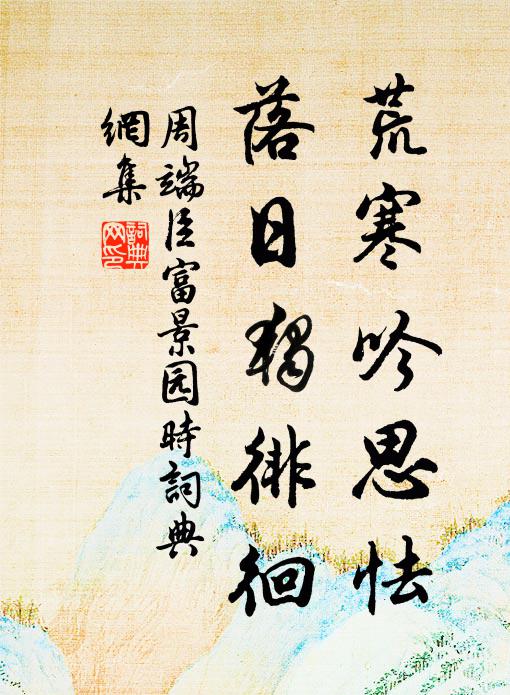 荒寒吟思怯
落日独徘徊
周端臣富景园時詞典
網集
詞典网印